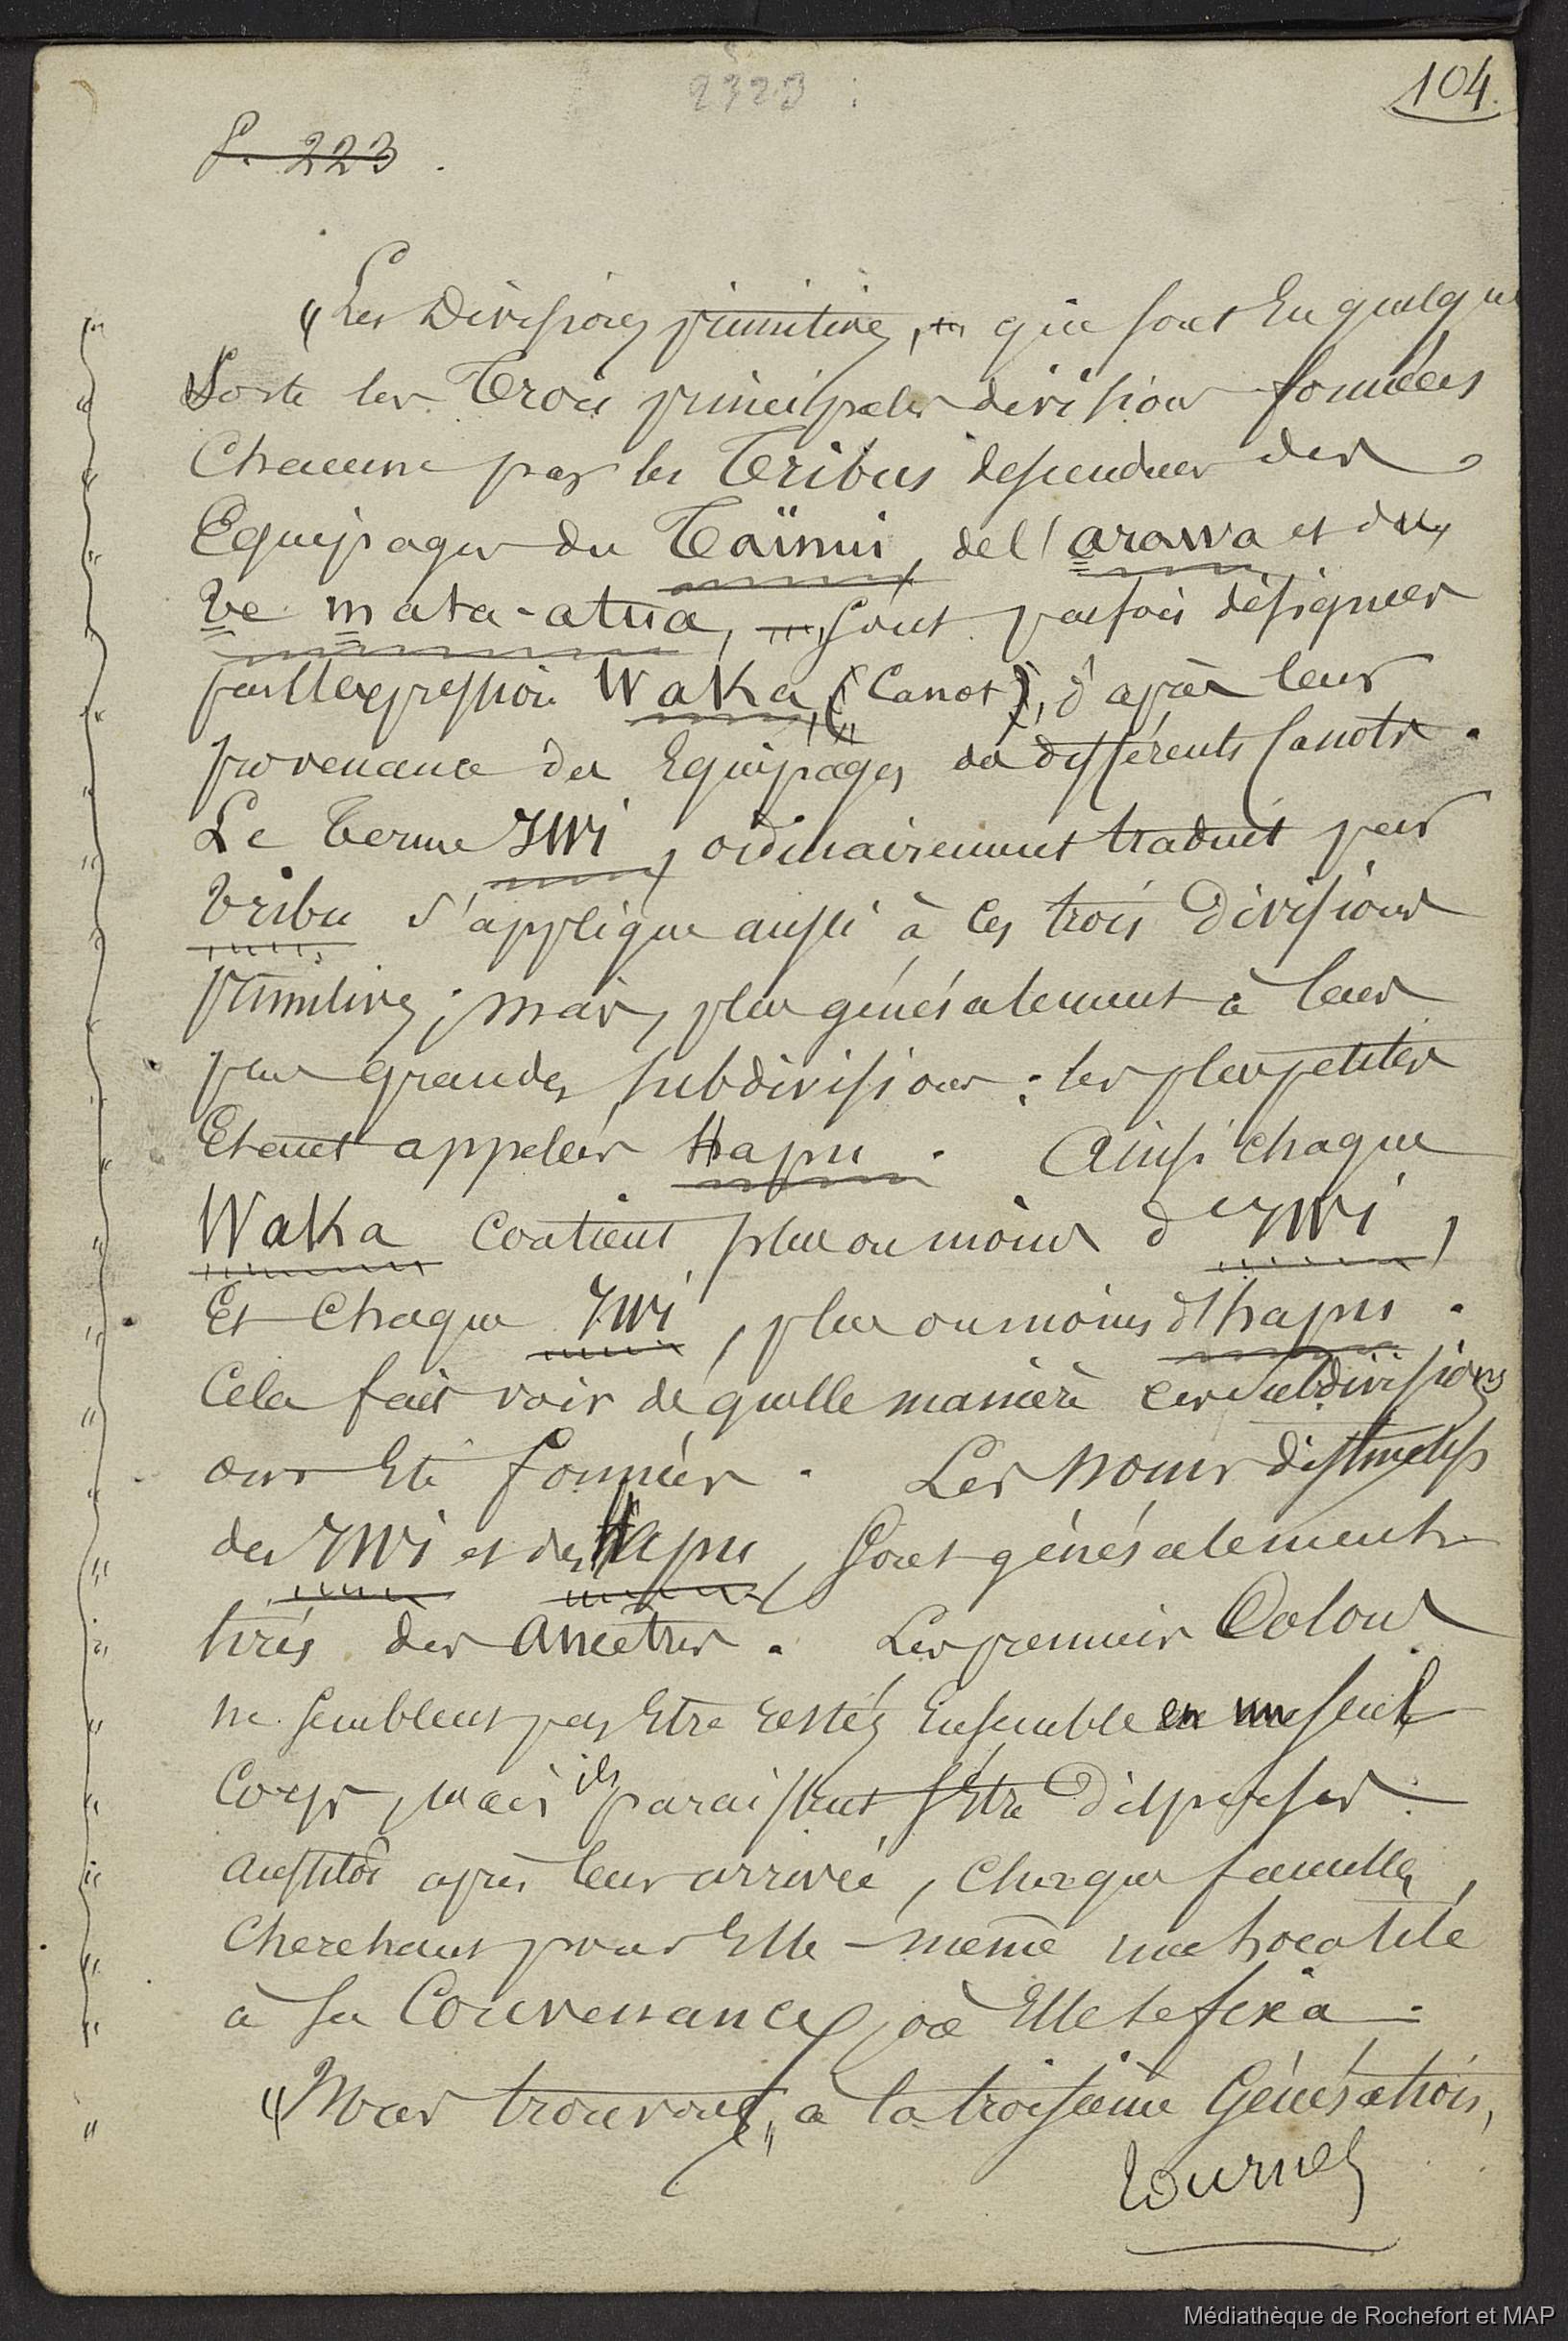 2323
104.
P. 223.
"Les Divisions primitives, qui sont En quelque
Sorte les Trois principales divisions formées
Chacune par les Tribus descendues des
Equipages du Taïnui, de l'arawa et du
Te mata-atua, sont parfois désignées
par l'expression Waka, (Canot), d'après leur
provenance des Equipages de différents Canots.
Le terme Iwi, ordinairement traduit par
Tribu s'applique aussi à ces trois Divisions
primitives; mais, plus généralement à leurs
plus grandes subdivisions: les plus petites
Etant appelées Hapu. Ainsi chaque
Waka contient plus ou moins d'Iwi,
Et Chaque Iwi, plus ou moins d'hapu.
Cela fait voir de quelle manière ces Subdivisions
ont Eté formées. Les noms distinctifs
des Iwi et des Hapu, sont généralement
tirés des Ancêtres. Les premiers Colons
ne semblent pas Etre restés Ensemble en un seul
Corps, mais ils paraissent s'Etre dispersés
aussitôt après leur arrivée, Chaque famille,
Cherchant pour Elle-même une localité
à sa Convenance, où Elle se fixa.
"Nous trouvons, à la troisième Génération,
tournez
Médiathèque de Rochefort et MAP